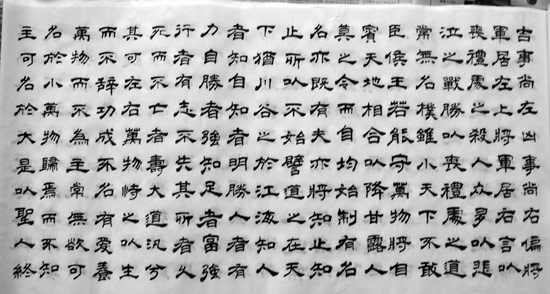 吉事尚左凶事尚右偏將
軍居左上將軍居右言以
喪禮處之殺人眾多以悲
泣之戰勝以喪禮處之道
常無名樸雖小天下不敢
臣侯王若能守萬物將自
賓天地相合以降甘露人
莫之令而自均始制有名
名亦既有夫亦將知止知
止所以不始譬道之在天
下猶川谷之於江海知人
者知自知者明勝人者有
力自勝者強知足者富強
行者有志不失其所者久
死而不亡者壽大道汎兮
其可左右萬物恃之以生
而不辭功成不名有愛養
萬物而不為主常無欲可
名於小萬物歸焉而不知
主可名於大是以聖人終